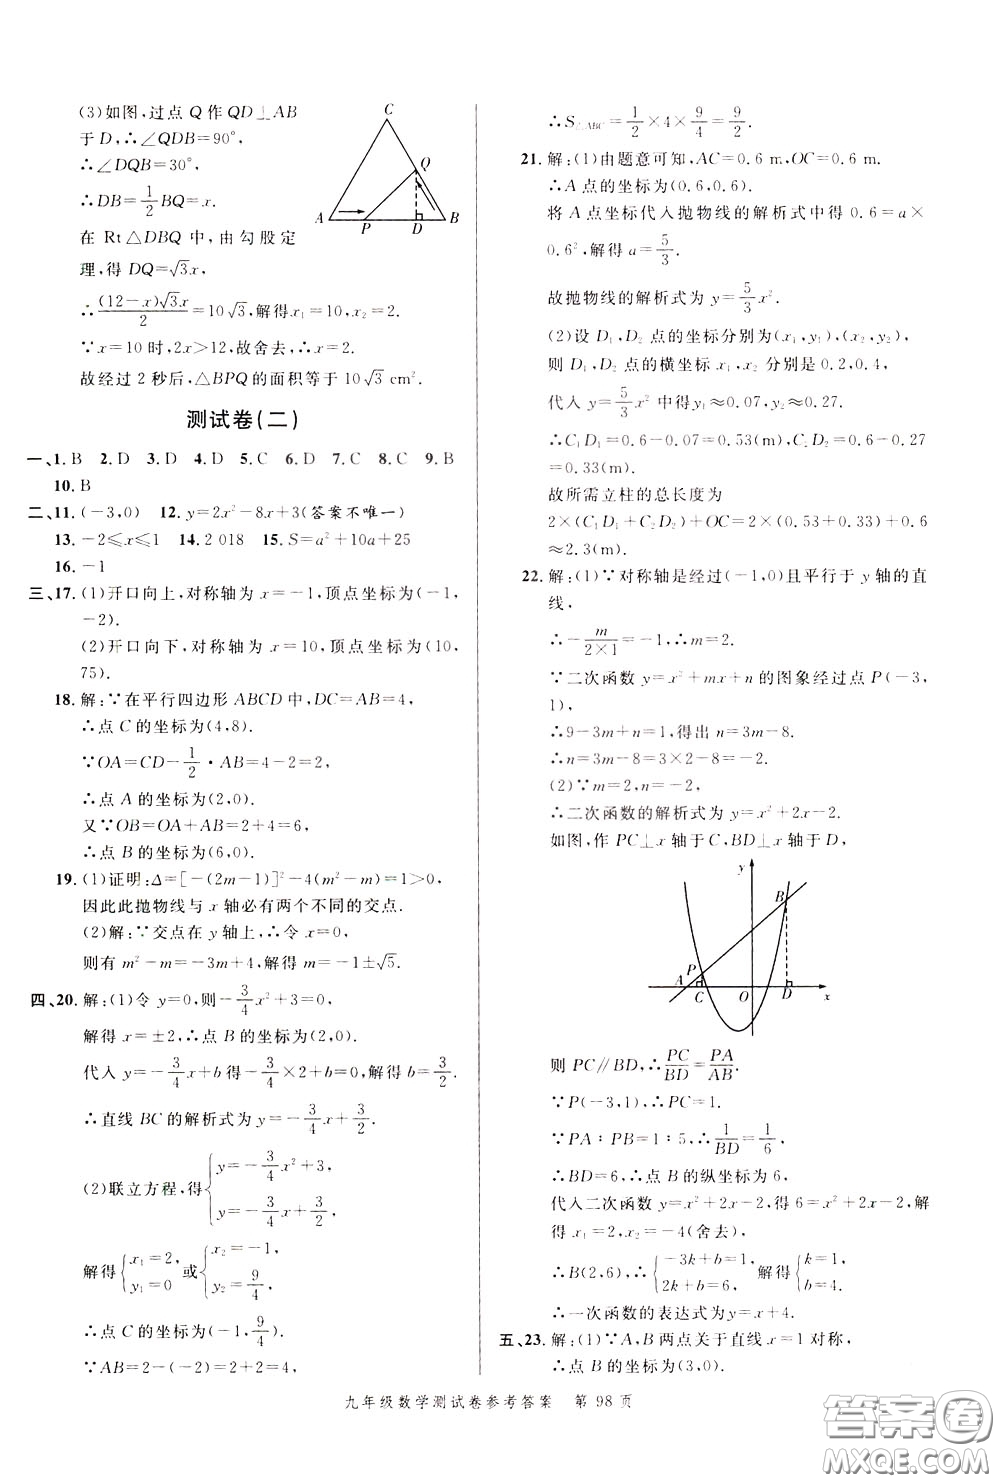 (3)如图,过点 Q 作 QD⊥AB
于 D,∴∠QDB=90°,
∴∠DQB=30°,
∴DB=1/2BQ=x.
在 Rt△DBQ 中,由勾股定
理,得 DQ=√3x,
∴(12-x)√3x/2=10√3,解得x₁=10,x₂=2.
∵x=10 时,2x>12,故舍去,∴x=2.
故经过 2 秒后,△BPQ 的面积等于 10√3 cm².
C
Q
A
P
D
B
测试卷(二)
一、1.B 2.D 3.D 4.D 5.C 6.D 7.C 8.C 9.B
10.B
二、11.(-3,0) 12.y=2x²-8x+3(答案不唯一)
13.-2≤x≤1 14.2 018 15.S=a²+10a+25
16.-1
三、17.(1)开口向上,对称轴为 x=-1,顶点坐标为(-1,
-2).
(2)开口向下,对称轴为 x=10,顶点坐标为(10,
75).
18.解:∵在平行四边形 ABCD 中,DC=AB=4,
∴点 C 的坐标为(4,8).
∵OA=CD-1/2·AB=4-2=2,
∴点 A 的坐标为(2,0).
又∵OB=OA+AB=2+4=6,
∴点 B 的坐标为(6,0).
19.(1)证明:Δ=[-(2m-1)]²-4(m²-m)=1>0,
因此此抛物线与 x 轴必有两个不同的交点.
(2)解:∵交点在 y 轴上,∴令 x=0,
则有 m²-m=-3m+4,解得 m=-1±√5.
四、20.解:(1)令 y=0,则-3/4x²+3=0,
解得 x=±2,∴点 B 的坐标为(2,0).
代入 y=-3/4x+b 得-3/4×2+b=0,解得 b=3/2.
∴直线 BC 的解析式为 y=-3/4x+3/2.
(2)联立方程,得{y=-3/4x²+3, y=-3/4x+3/2,
解得{x₁=2, y₁=0 或{x₂=-1, y₂=9/4,
∴点 C 的坐标为(-1,9/4).
∵AB=2-(-2)=2+2=4,
∴S△ABC=1/2×4×9/4=9/2.
21.解:(1)由题意可知,AC=0.6 m,OC=0.6 m.
∴A 点的坐标为(0.6,0.6).
将 A 点坐标代入抛物线的解析式中得 0.6=a×
0.6²,解得 a=5/3.
故抛物线的解析式为 y=5/3x².
(2)设 D₁,D₂ 点的坐标分别为(x₁,y₁),(x₂,y₂),
则 D₁,D₂ 点的横坐标 x₁,x₂ 分别是 0.2,0.4,
代入 y=5/3x² 中得y₁≈0.07,y₂≈0.27.
∴C₁D₁=0.6-0.07=0.53(m),C₂D₂=0.6-0.27
=0.33(m).
故所需立柱的总长度为
2×(C₁D₁+C₂D₂)+OC=2×(0.53+0.33)+0.6
≈2.3(m).
22.解:(1)∵对称轴是经过(-1,0)且平行于 y 轴的直
线,
∴-m/(2×1)=-1,∴m=2.
∵二次函数 y=x²+mx+n 的图象经过点 P(-3,
1),
∴9-3m+n=1,得出 n=3m-8.
∴n=3m-8=3×2-8=-2.
(2)∵m=2,n=-2,
∴二次函数的解析式为 y=x²+2x-2.
如图,作 PC⊥x 轴于 C,BD⊥x 轴于 D,
y
B
P
A
C
O
D
x
则 PC∥BD,∴PC/BD=PA/AB.
∵P(-3,1),∴PC=1.
∵PA∶PB=1∶5,∴1/BD=1/6.
∴BD=6,∴点 B 的纵坐标为 6,
代入二次函数 y=x²+2x-2,得 6=x²+2x-2,解
得 x₁=2,x₂=-4(舍去).
∴B(2,6),∴{-3k+b=1, 2k+b=6, 解得{k=1, b=4.
∴一次函数的表达式为 y=x+4.
五、23.解:(1)∵A,B 两点关于直线 x=1 对称,
∴点 B 的坐标为(3,0).
九年级数学测试卷参考答案 第 98 页
答案卷
MXQE.COM